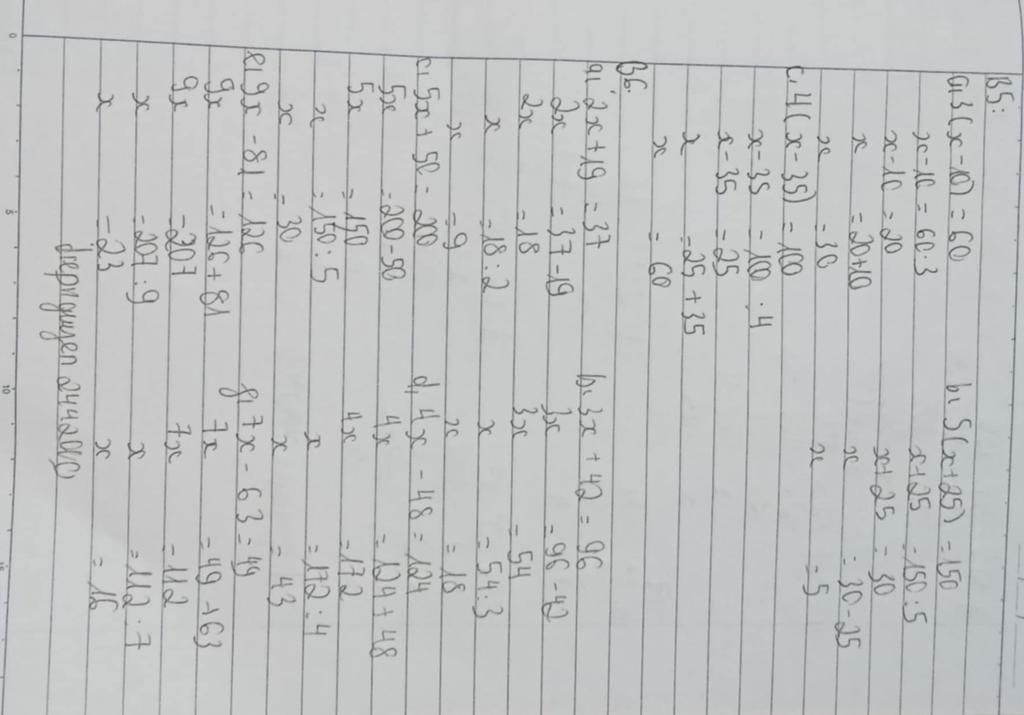 B5:
a, 3(x-10) = 60
x-10 = 60:3
x-10 = 20
x = 20+10
x = 30
b, 5(x+25) = 150
x+25 = 150:5
x+25 = 30
x = 30-25
x = 5
c, 4(x-35) = 100
x-35 = 100:4
x-35 = 25
x = 25+35
x = 60
B6:
a, 2x+19 = 37
2x = 37-19
2x = 18
x = 18:2
x = 9
b, 3x+42 = 96
3x = 96-42
3x = 54
x = 54:3
x = 18
c, 5x+50 = 200
5x = 200-50
5x = 150
x = 150:5
x = 30
d, 4x-48 = 124
4x = 124+48
4x = 172
x = 172:4
x = 43
e, 9x-81 = 126
9x = 126+81
9x = 207
x = 207:9
x = 23
g, 7x-63 = 49
7x = 49+63
7x = 112
x = 112:7
x = 16
0 5 10